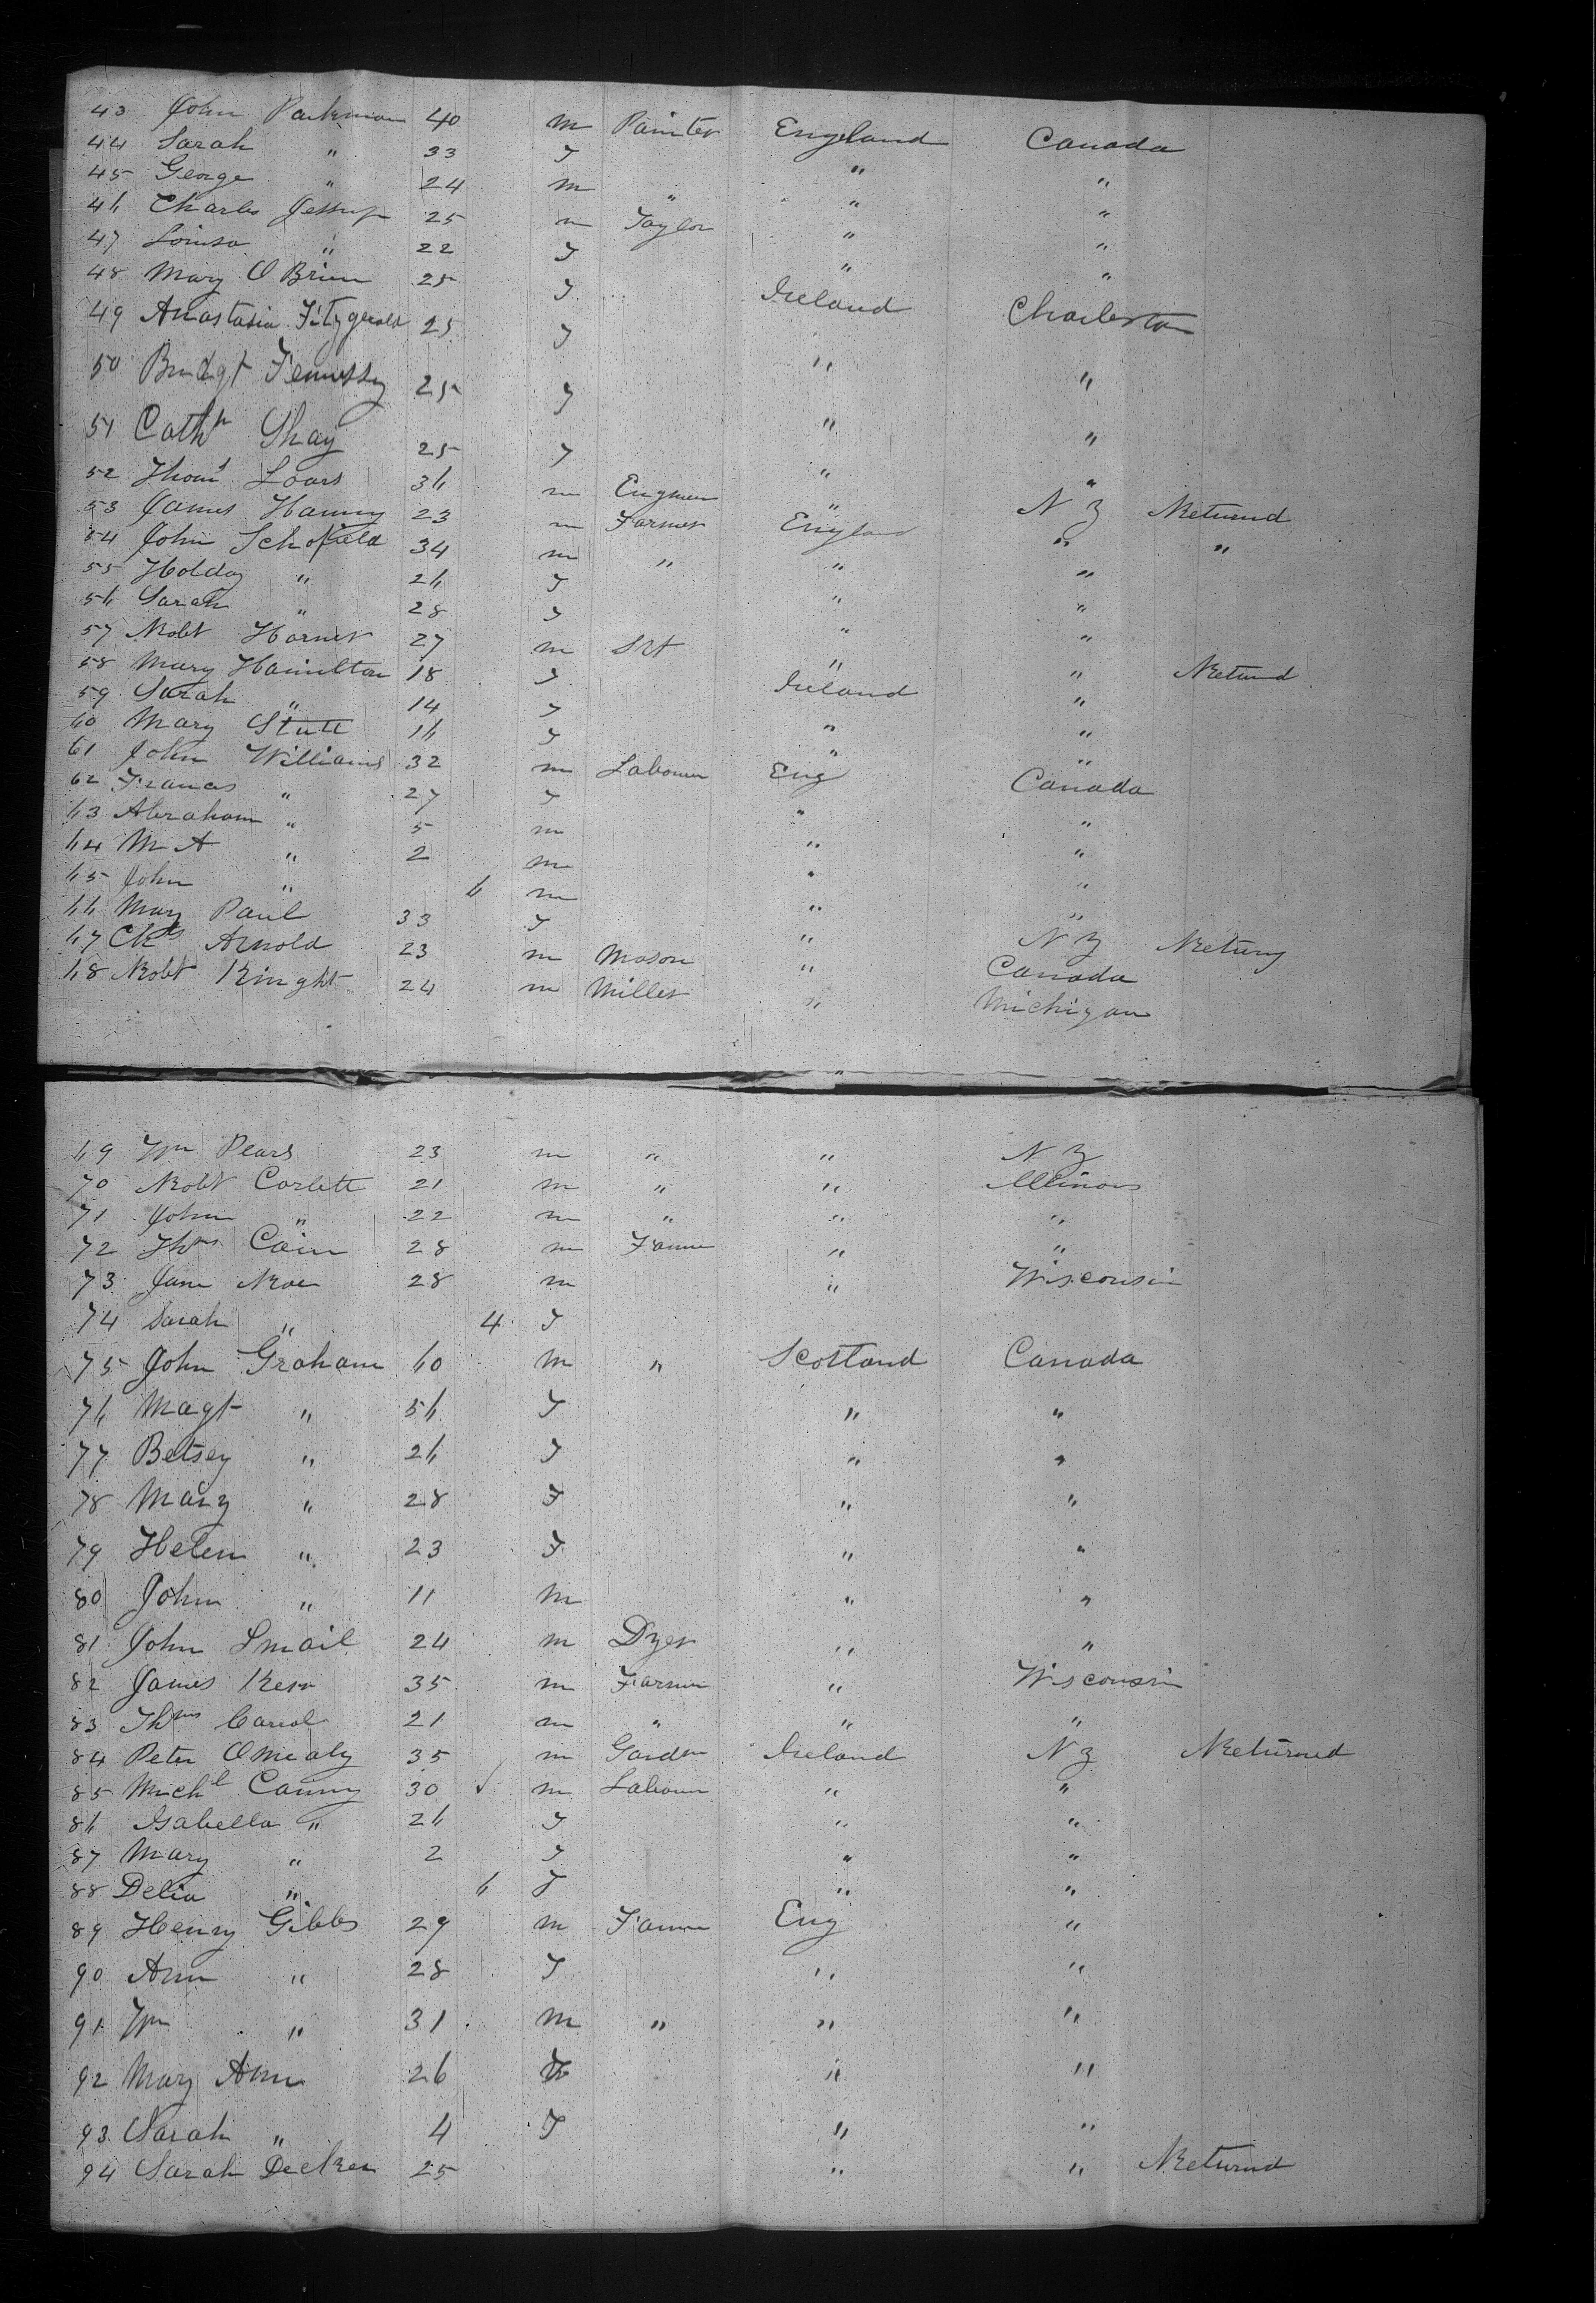 43 John Parkman 40 m Painter England Canada
44 Sarah " 33 F " "
45 George " 24 m " " "
46 Charles Jessup 25 m Taylor " "
47 Louisa " 22 F " "
48 Mary O Brien 25 F Ireland Charleston
49 Anastasia Fitzgerald 25 F " "
50 Bridgt Fennessy 25 F " "
51 Cathn Shay 25 F " "
52 Thoms Loars 36 m Engineer " N Y Returnd
53 James Hanny 23 m Farmer England " "
54 John Schofield 34 m " " "
55 Holday " 26 F " "
56 Sarah " 28 F " "
57 Robt Horner 27 m Srt " " Returnd
58 Mary Hamilton 18 F Ireland "
59 Sarah " 14 F " "
60 Mary Stutt 16 F " "
61 John Williams 32 m Labourer Eng Canada
62 Frances " 27 F " "
63 Abraham " 5 m " "
64 M A " 2 m " "
65 John " 6 m " "
66 Mary Paul 33 F " N Y Return
67 Chs Arnold 23 m Mason " Canada
68 Robt Knight 24 m Miller " Michigan
69 Wm Pears 23 m " " N Y
70 Robt Corlett 21 m " " Illinois
71 John " 22 m " " "
72 Thos Cain 28 m Farmer " "
73 Jane Roe 28 m " Wisconsin
74 Sarah " 4 F
75 John Graham 60 m " Scotland Canada
76 Magt " 56 F " "
77 Betsey " 26 F " "
78 Mary " 28 F " "
79 Helen " 23 F " "
80 John " 11 m " "
81 John Smail 24 m Dyer " "
82 James Kerr 35 m Farmer " Wisconsin
83 Thms Carrol 21 m " " "
84 Peter O Mealy 35 m Garden Ireland N Y Returned
85 Michl Canny 30 ✓ m Labour " "
86 Isabella " 26 F " "
87 Mary " 2 F " "
88 Delia " 6 F " "
89 Henry Gibbs 29 m Farmer Eng "
90 Ann " 28 F " "
91 Wm " 31 m " " "
92 Mary Ann 26 F " "
93 Sarah " 4 F " "
94 Sarah Decker 25 " " Returnd